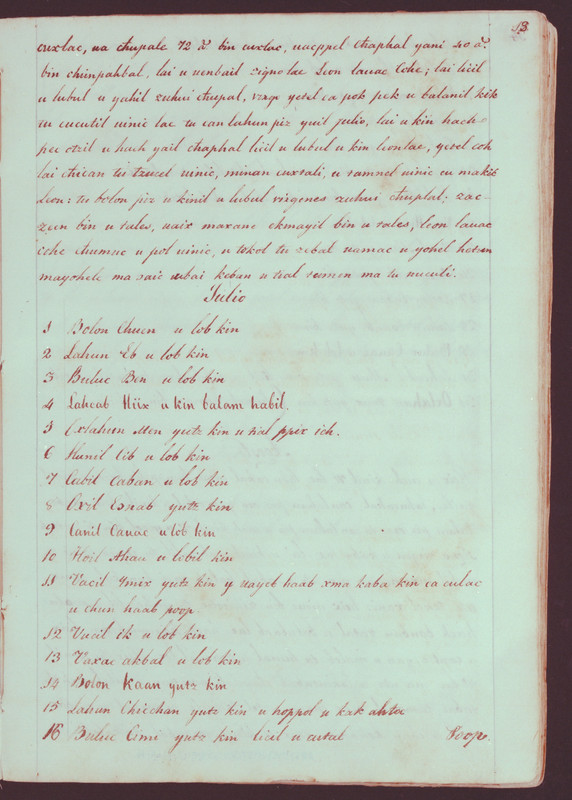 13
cuxlac, ua chupale 72 a.s bin cuxlac, uacppel chaphal yani 40 a.s
bin chiinpahbal, lai u uenbail zignolae Leon lauac Cche; lai licil
u lubul u yahil zuhui chupal, yetel ca pok pek u balanil kik
tu cucutil uinic lae tu can lahun piz yuil julio, lai u kin hach
pec otzil u huch yail chaphal licil u lubul u kin leonlae, yetel coh
lai chican tu tzucel uinic, minan cuxtali, u tamnel uinic cu makic
Leon: tu bolon piz u kinil u lubul virgenes zuhui chuplal; zac-
bin u tales, uaix maxane ekmayil bin u tales, leon lauac
cche chumuc u pol uinic, u tokol tu zebal uamac u yohel
mayohele ma xaic u tial tumen ma tu
Julio
1 Bolon Chuen u lob kin
2 Lahun Eb u lob kin
3 Buluc Ben u lob kin
4 Lahcab Hiix u kin balam habil.
5 Oxlahun Men yutz kin u tial ppix ich.
6 Hunil Cib u lob kin
7 Cabil Caban u lob kin
8 Oxil Esnab yutz kin
9 Canil Cauac u lob kin
10 Hoil Ahau u lobil kin
11 Uacil Ymix yutz kin y uayeb haab xma kaba kin ca culac
u chun haab poop.
12 Uucil ik u lob kin
13 Uaxac akbal u lob kin
14 Bolon Kaan yutz kin
15 Lahun Chicchan yutz kin u hoppol u kak ahtoc
16 Buluc Cimi yutz kin licil u cutal Poop.